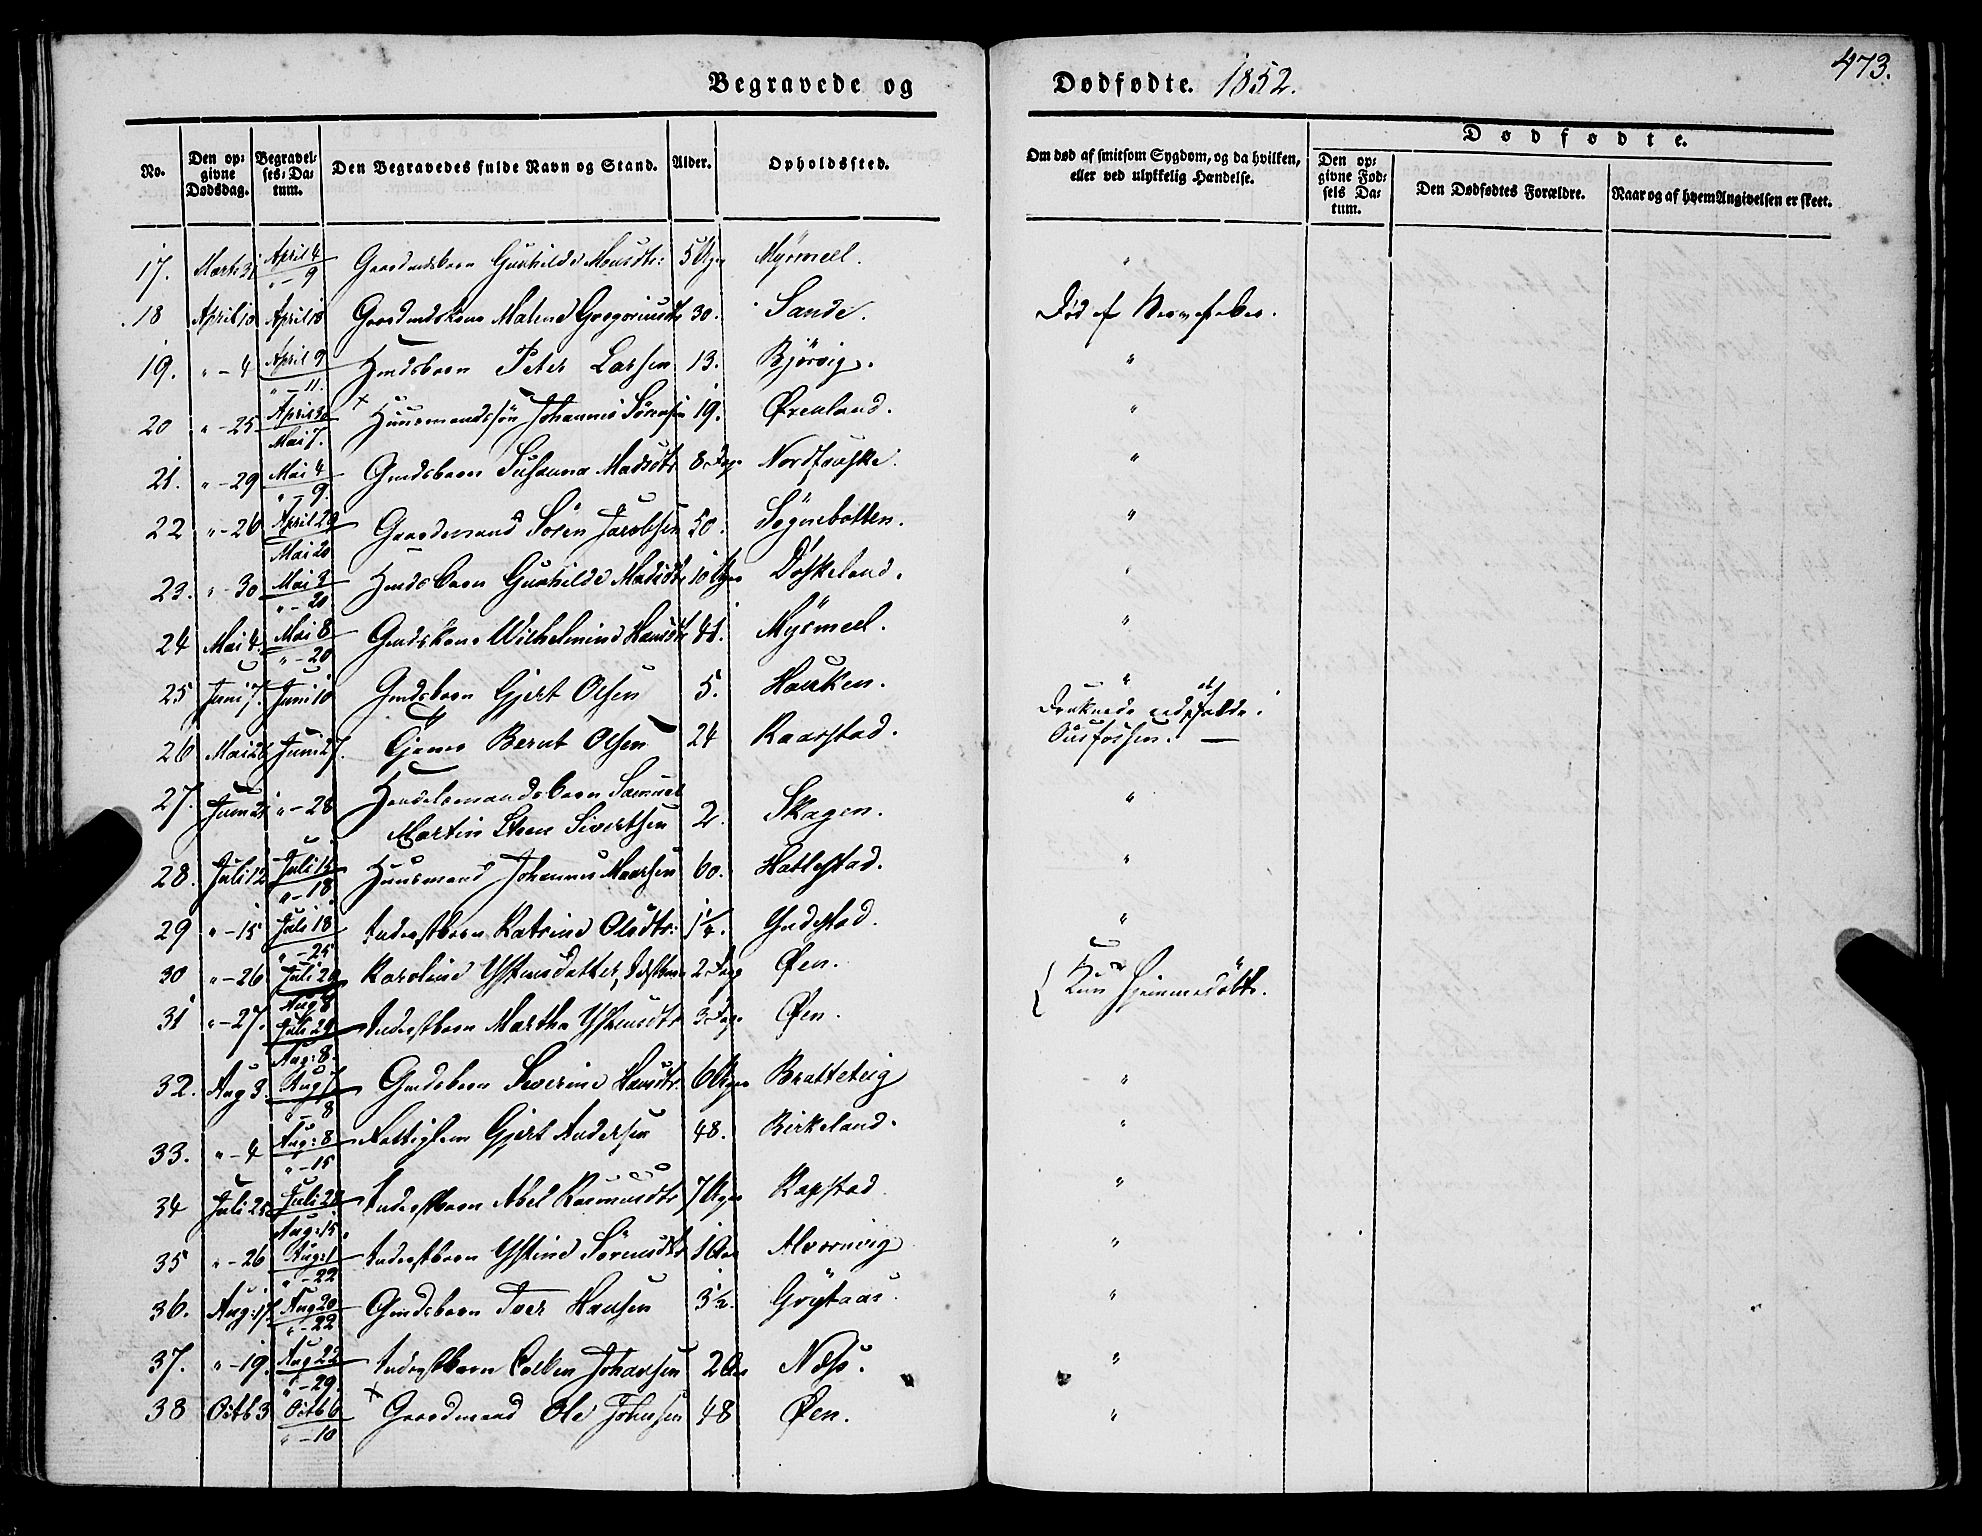 Begravede og Dødfødte. 1852. 473.
No.
Den op-
givne
Dødsdag.
Begravel-
ses-Da-
tum.
Den Begravedes fulde Navn og Stand.
Alder.
Opholdssted.
Om død af smitsom Sygdom, og da hvilken,
eller ved ulykkelig Hændelse.
Dødfødte.
Den op-
givne Fød-
sels Da-
tum.
Den Dødfødtes Forældre.
Naar og af hvem Angivelsen er skeet.
17. Marts 31 April 4 " - 9 Gaardmdsbarn Gunhilde Monsdtr: 5 Uger Myrmeel. "
18 April 10 April 18 Gaardmdskone Malene Gregoriusdtr 30. Sande. Død af Nervefeber.
19. " - 4 April 9 " - 11. Gmdsbarn Peter Larsen 13. Bjørvig. "
20 " - 25 April 30 Mai 7. Huusmandssøn Johannes Sørensen 19. Øxenland. "
21. " - 29 Mai 4 " - 9. Gmdsbarn Susanna Madsdtr 8 Dage Nordtauske. "
22 " - 26 April 29 Mai 20 Gaardmand Søren Jacobsen 50. Sognebotten. "
23. " - 30 Mai 9 " - 20 Hmdsbarn Gunhilde Madsdtr 10 Uger Døskeland. "
24 Mai 4. Mai 8 " - 20 Gmdskone Wilhelmine Hansdtr 41. Myrmeel. "
25 Juni 7. Juni 10 Gmdsbarn Gjert Olsen 5. Hauken. "
26 Mai 26 Juni 27. Bernt Olsen 24 Raarstad. Druknede ved at falde i
Ousfossen. —
27. Juni 21 " - 28 Handelsmandsbarn Samuel
Martin Steen Sivertsen 2. Skagen. "
28. Juli 12 Juli 15 " - 18 Huusmand Johannes Hansen 60. Hatlestad. "
29 " - 15 Juli 18 " - 25 Inderstbarn Katrine Olsdtr: 1 1/4. Yndestad. "
30 " - 26 Juli 29 Aug 8 Karoline Ystensdatter, Indstbarn 2 Dage Øen. { Kun hjemmedøbte.
31 " - 27. Juli 29 Aug: 8. Inderstbarn Martha Ystensdtr 3 Dage Øen.
32. Aug 3. Aug 7 " - 8 Gmdsbarn Severine Hansdtr. 6 Uger Bratteteig "
33. " - 4 Aug: 8 " - 15 Fattiglem Gjert Andersen 48. Birkeland. "
34 Juli 25 Juli 28 Aug: 15. Inderstbarn Abel Rasmusdtr 7 Uger Rapstad "
35 " - 26 Aug: 1 " - 22 Inderstbarn Ystine Sørensdtr 1 Aar Alvornvig "
36. Aug: 17. Aug 20 " - 22 Gmdsbarn Iver Hansen 3 1/2. Grytaas. "
37. " - 19. Aug 22 " - 29. Inderstbarn Colben Johansen 2 Aar Næss. "
38 Octb 3 Octb 6 " - 10 Gaardmand Ole Johnsen 48 Øen. "